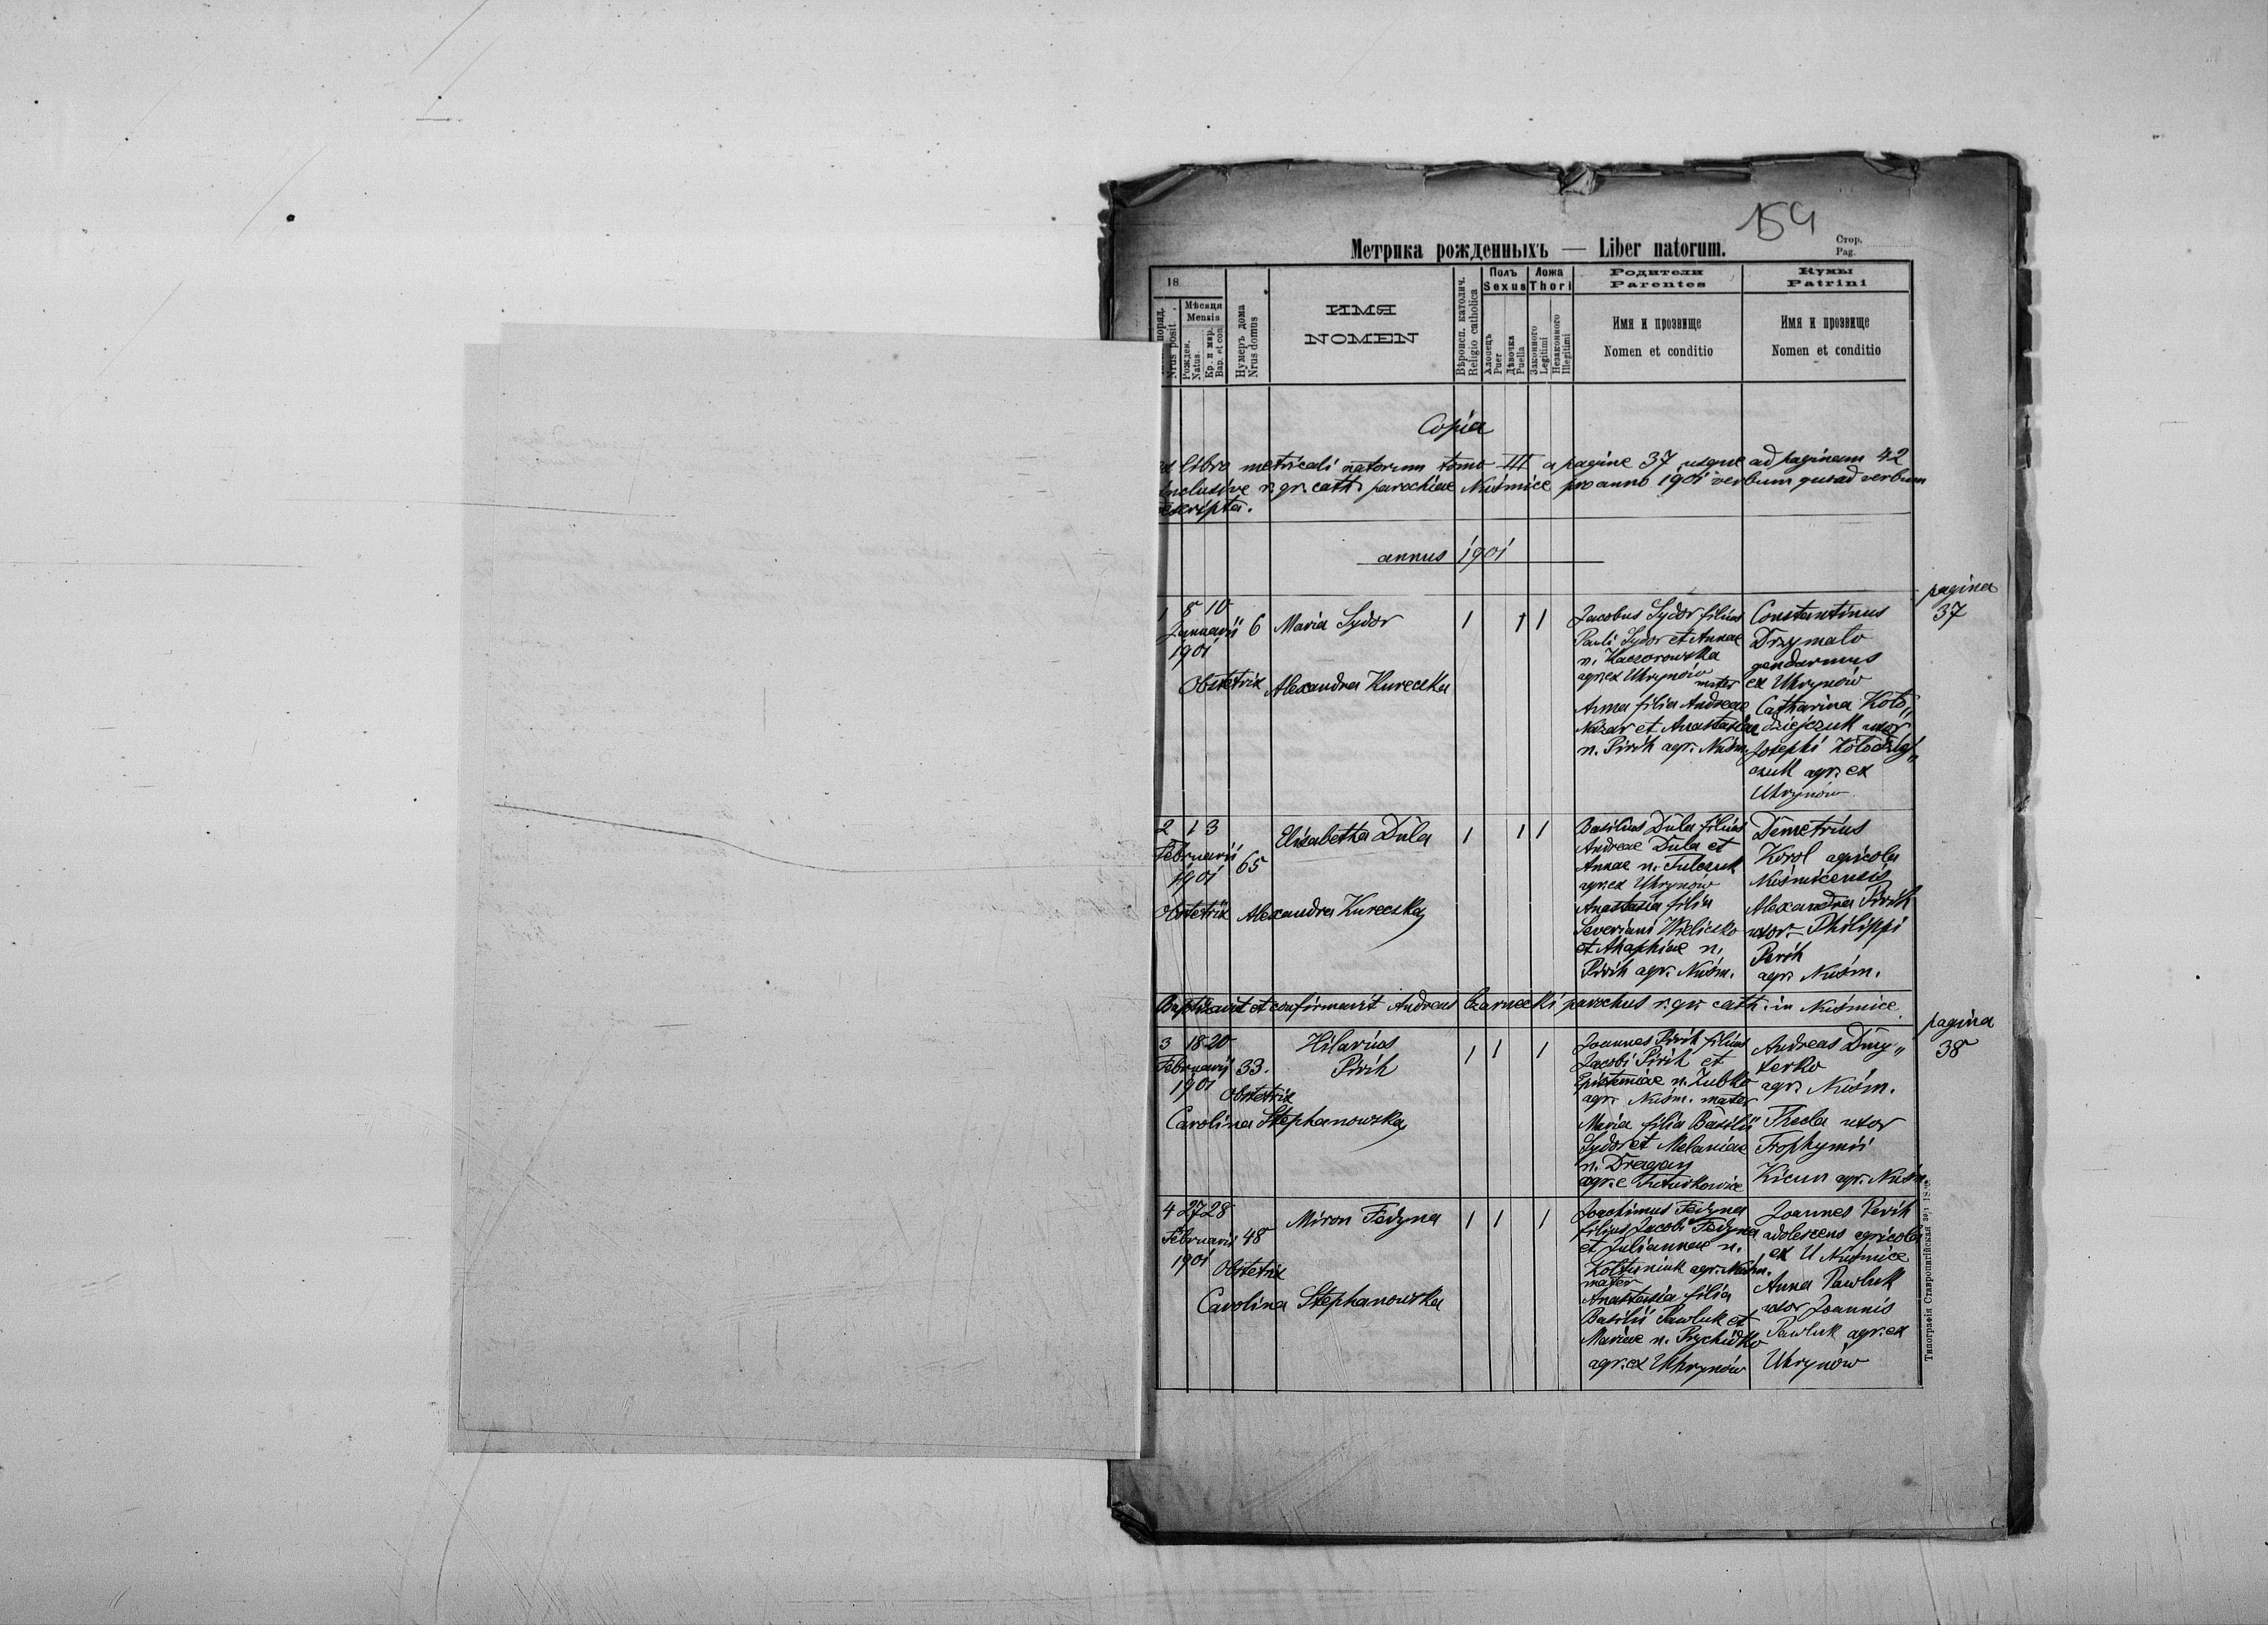 154
Метрика рожденныхъ — Liber natorum.
Стор.
Pag.
18
поряд.
Nrus posit.
Мѣсяця
Mensis
Рожден.
Natus.
Кр. и мир.
Bap. et con
Нумеръ дома
Nrus domus
ИМЯ
NOMEN
Вѣроисп. католич.
Religio catholica
Полъ
Sexus
Хлопецъ
Puer
Дѣвочка
Puella
Ложа
Thori
Законного
Legitimi
Незаконного
Illegitimi
Родители
Parentes
Имя и прозвище
Nomen et conditio
Кумы
Patrini
Имя и прозвище
Nomen et conditio
Copia
ex libro metricali natorum tomo III a pagine 37 usque ad paginam 42
inclusive r. gr. cath. parochiae Nuśmice pro anno 1901 verbum quoad verbum
escripta.
annus 1901
pagina
37
1 8 10
Januarii
1901
6
Maria Sydor
1 1 1
Obstetrix Alexandra Kureczka
Jacobus Sydor filius
Pauli Sydor et Annae
n. Kaczorowska
agr. ex Uhrynów
mater
Anna filia Andreae
Nazar et Anastasiae
n. Pirih agr. Nuśm.
Constantinus
Drzymalo
gendarmus
ex Uhrynów
Catharina Koło„
dziejczuk uxor
Josephi Kołodziej„
czuk agr. ex
Uhrynów
2 1 3
Februarii
1901
65
Elisabetha Dula
1 1 1
Obstetrix Alexandra Kureczka
Basilius Dula filius
Andreae Dula et
Annae n. Tulczuk
agr. ex Uhrynów
Anastasia filia
Severiani Wieliczko
et Ahaphiae n.
Pirih agr. Nuśm.
Demetrius
Korol agricola
Nuśmicensis
Alexandra Pirih
uxor Philippi
Perih
agr. Nuśm.
Baptizavit et confirmavit Andreas Czarnecki parochus r. gr. cath. in Nuśmice
pagina
38
3 18 20
Februarii
1901
33.
Hilarius
Pirih
1 1 1
Obstetrix
Carolina Stephanowska
Joannes Pirih filius
Jacobi Pirih et
Epistemiae n. Zubko
agr. Nuśm. mater
Maria filia Basilii
Sydor et Melaniae
n. Dragan
agr. e Tuturkowice
Andreas Dmy„
terko
agr. Nuśm.
Thecla uxor
Trophymii
Kicun agr. Nuśm
4 27 28
Februarii
1901
48
Miron Fedyna
1 1 1
Obstetrix
Carolina Stephanowska
Joachimus Fedyna
filius Jacobi Fedyna
et Juliannae n.
Koltuniuk agr. Nuśm.
mater
Anastasia filia
Basilii Pawluk et
Mariae n. Prychidko
agr. ex Uhrynów
Joannes Perih
adolescens agricola
ex U Nuśmice
Anna Pawluk
uxor Joannis
Pawluk agr. ex
Uhrynów
Типографія Ставропигійская зар.